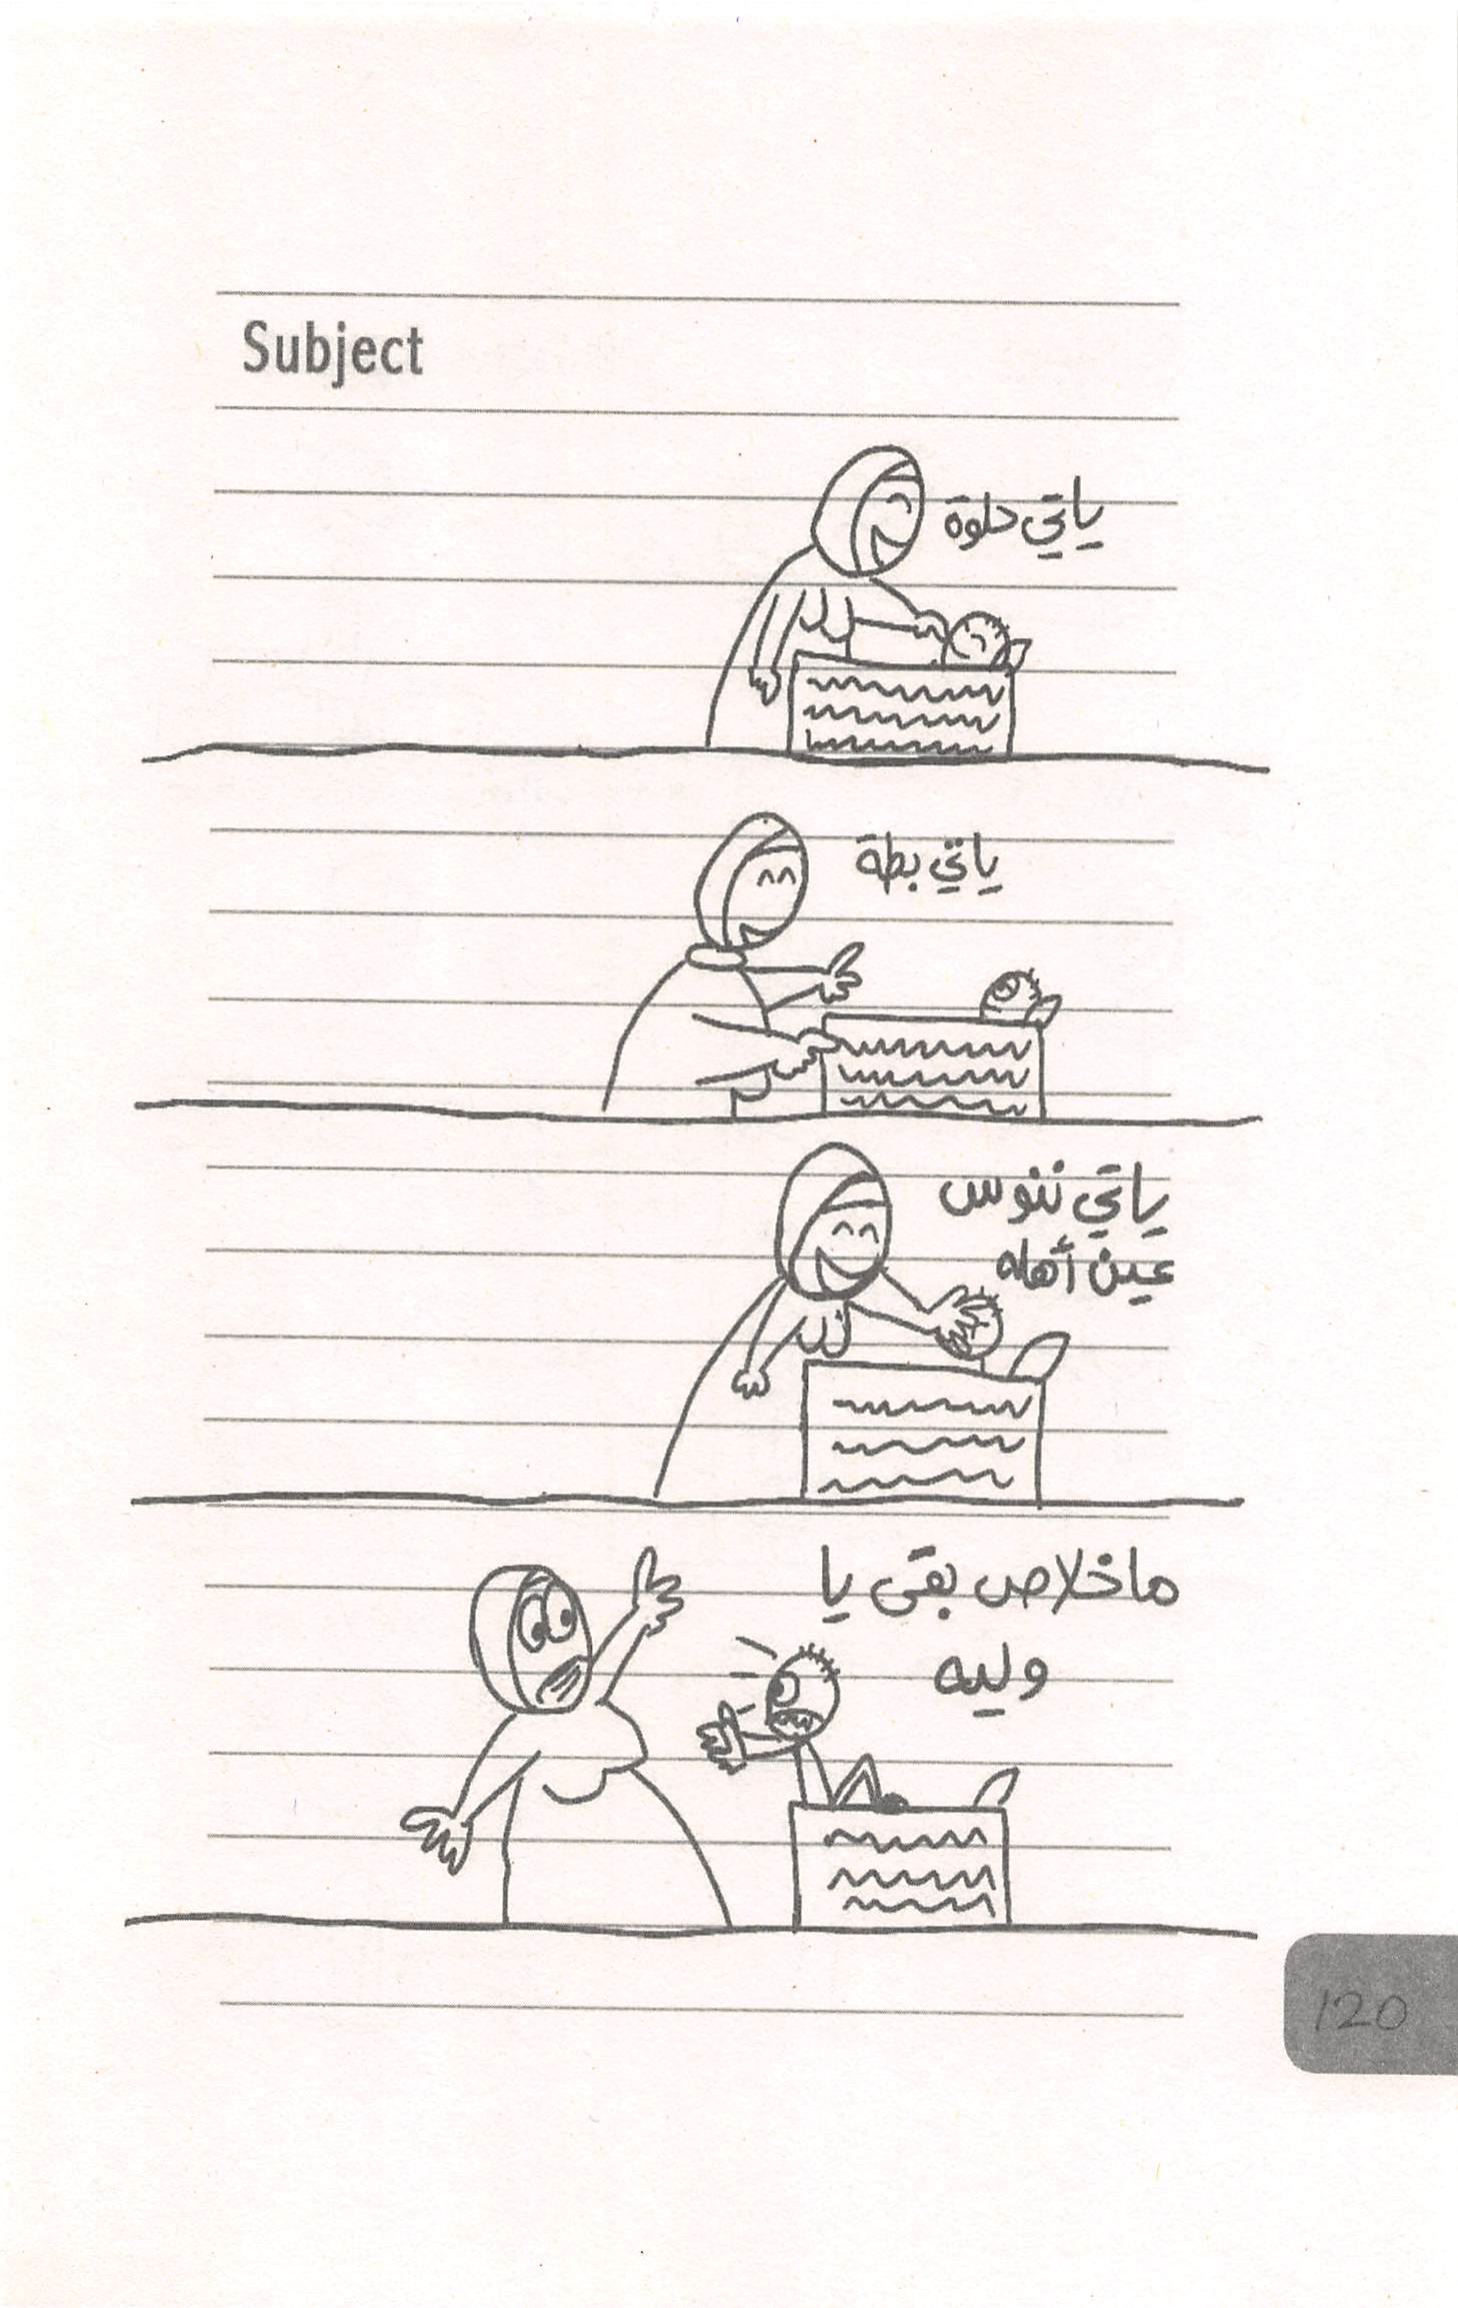 Subject
ياتي حلوة
ياتي بطة
ياتي ننوس
عين أهله
ماخلاص بقى يا
وليه
120